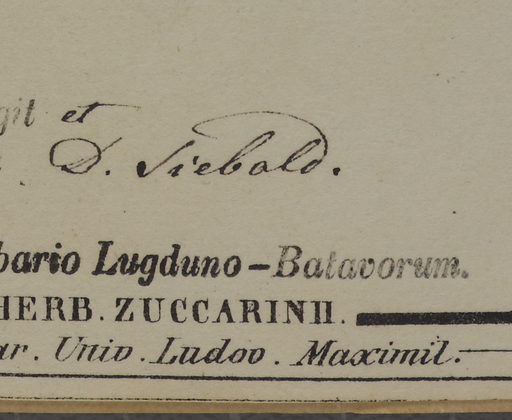 git et
D. Siebold.
bario Lugduno-Batavorum.
HERB. ZUCCARINII.
ar. Univ. Ludov. Maximil.